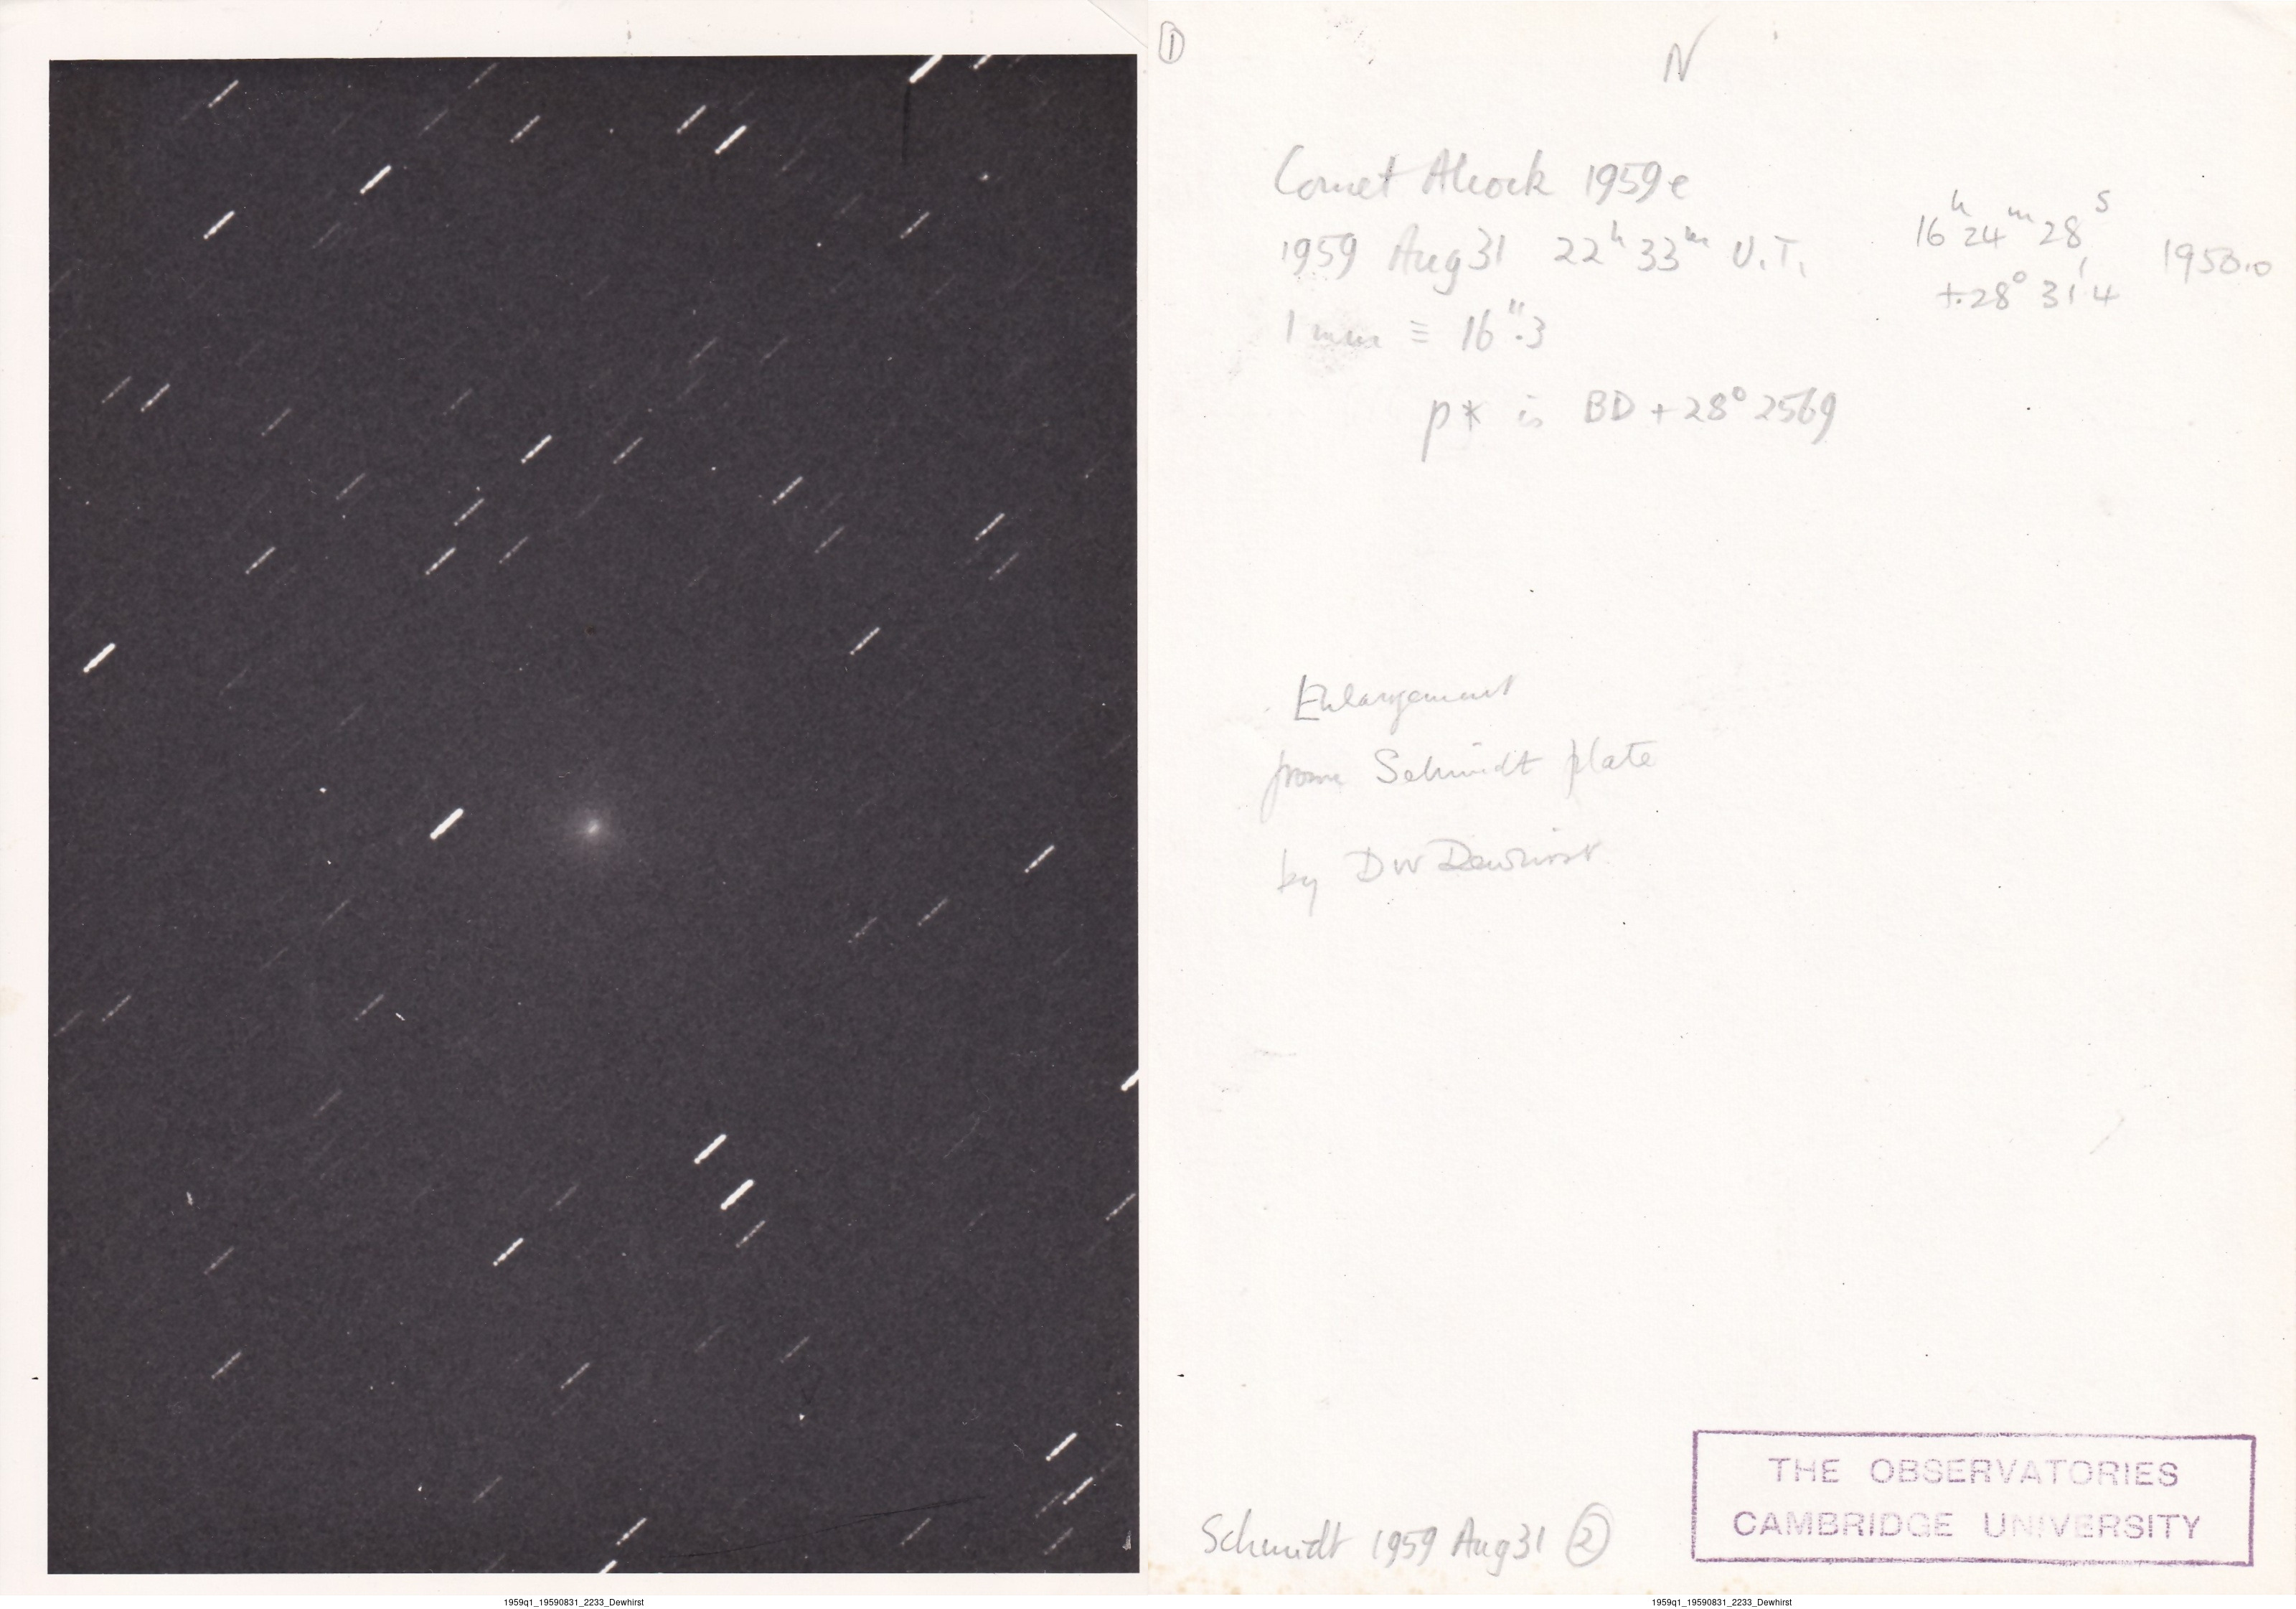 ①
N
Comet Alcock 1959e
1959 Aug 31 22ʰ 33ᵐ U.T.
16ʰ 24ᵐ 28ˢ
+28° 31'4
1950.0
1 mm ≡ 16".3
p* is BD + 28° 2569
Enlargement
from Schmidt plate
by DW Dewhirst
Schmidt 1959 Aug 31 ②
THE OBSERVATORIES
CAMBRIDGE UNIVERSITY
1959q1_19590831_2233_Dewhirst
1959q1_19590831_2233_Dewhirst